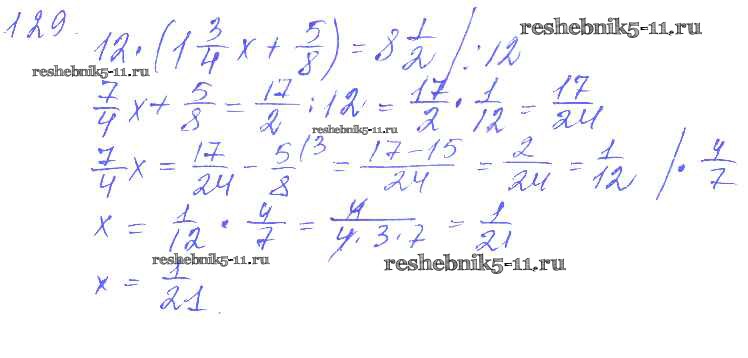 129.
12·(1 3/4 x + 5/8) = 8 1/2 /:12
reshebnik5-11.ru
reshebnik5-11.ru
7/4 x + 5/8 = 17/2 : 12 = 17/2 · 1/12 = 17/24
reshebnik5-11.ru
7/4 x = 17/24 - 5/8 (3 = 17-15/24 = 2/24 = 1/12 /· 4/7
x = 1/12 · 4/7 = 4/4·3·7 = 1/21
reshebnik5-11.ru
reshebnik5-11.ru
x = 1/21.